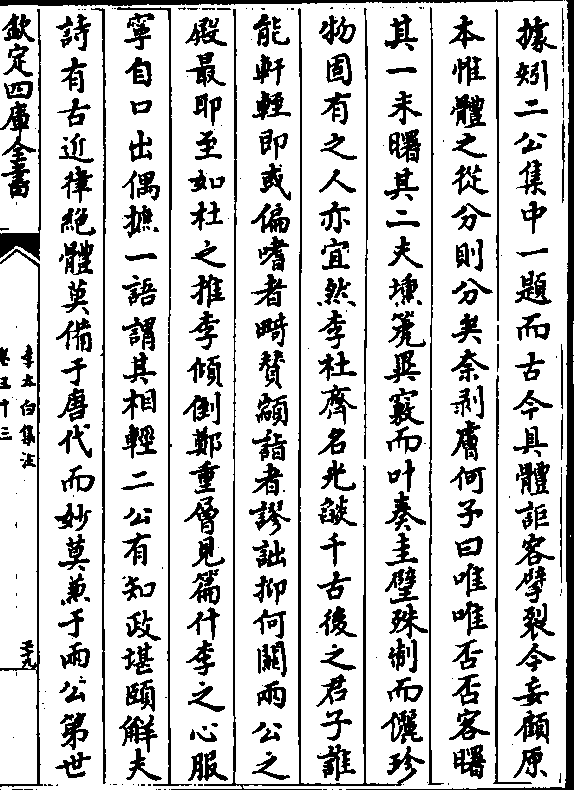 據矧二公集中一題而古今具體詎容擘裂今妄顧原
本惟體之從分則分矣奈剥膚何予曰唯唯否否客曙
其一未曙其二夫壎箎異竅而叶奏圭璧殊制而儷珍
物固有之人亦宜然李杜齊名光燄千古後之君子誰
能軒輊即或偏嗜者畸贊顓詣者謬詘抑何關兩公之
殿最即至如杜之推李傾倒鄭重層見篇什李之心服
寧自口出偶摭一語謂其相輕二公有知政堪頤解夫
詩有古近律絶體莫備于唐代而妙莫兼于兩公第世
欽定四庫全書
李太白集注
卷三十三